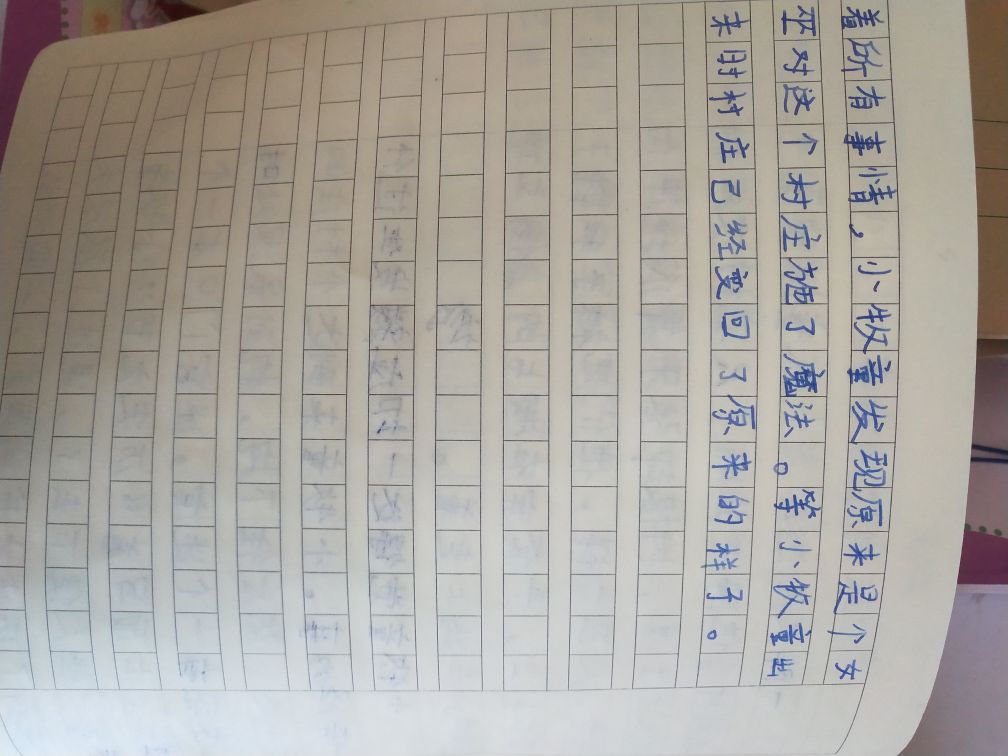 着所有事情，小牧童发现原来是个女
巫对这个村庄施了魔法。等小牧童出
来时村庄已经变回了原来的样子。